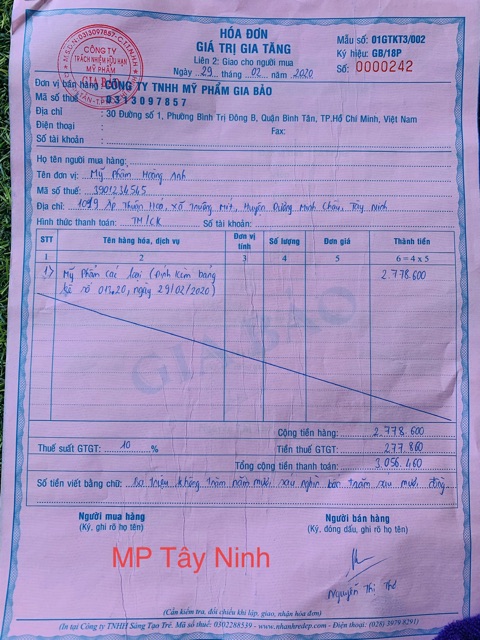 HÓA ĐƠN
GIÁ TRỊ GIA TĂNG
Liên 2: Giao cho người mua
Ngày 29 tháng 02 năm 2020
Mẫu số: 01GTKT3/002
Ký hiệu: GB/18P
Số: 0000242
M.S.D.N: 0313097857-C.T.T.N.H.H
CÔNG TY
TRÁCH NHIỆM HỮU HẠN
MỸ PHẨM
GIA BẢO
Đơn vị bán hàng CÔNG TY TNHH MỸ PHẨM GIA BẢO
Mã số thuế : 0313097857
Địa chỉ : 30 Đường số 1, Phường Bình Trị Đông B, Quận Bình Tân, TP.Hồ Chí Minh, Việt Nam
Điện thoại : Fax:
Số tài khoản :
Họ tên người mua hàng:
Tên đơn vị: Mỹ Phẩm Hoàng Anh
Mã số thuế: 3901234545
Địa chỉ: 1099 Ấp Thuận Hoà, xã Truông Mít, Huyện Dương Minh Châu, Tây Ninh
Hình thức thanh toán: TM/CK Số tài khoản:
STT Tên hàng hóa, dịch vụ Đơn vị tính Số lượng Đơn giá Thành tiền
1 2 3 4 5 6 = 4 x 5
1) Mỹ Phẩm các loại (Đính kèm bảng 2.778.600
kê số 013.20, ngày 29/02/2020)
GIA BẢO
Cộng tiền hàng: 2.778.600
Thuế suất GTGT: 10 % Tiền thuế GTGT: 277.860
Tổng cộng tiền thanh toán: 3.056.460
Số tiền viết bằng chữ: Ba triệu, không trăm năm mươi sáu nghìn bốn trăm sáu mươi đồng.
Người mua hàng
(Ký, ghi rõ họ tên)
Người bán hàng
(Ký, đóng dấu, ghi rõ họ tên)
MP Tây Ninh
Nguyễn Thị Thê
(Cần kiểm tra, đối chiếu khi lập, giao, nhận hóa đơn)
(In tại Công ty TNHH Sáng Tạo Trẻ. Mã số thuế: 0302288539 - www.nhanhredep.com - Điện thoại: (028) 3979 8291)